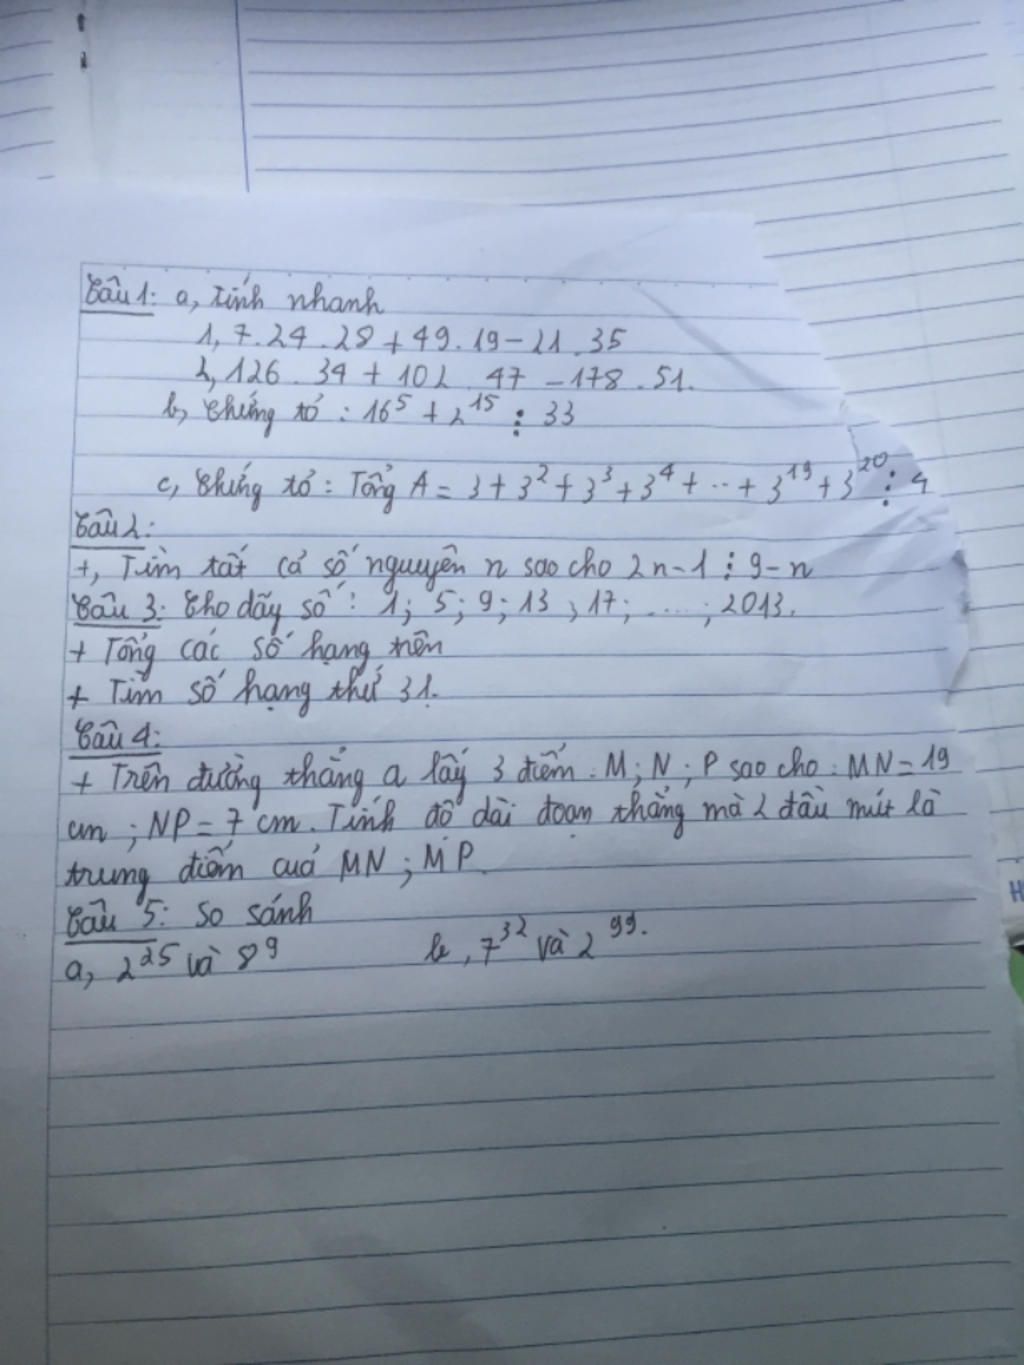 Câu 1: a, Tính nhanh
1, 7.24.28 + 49.19 - 21.35
2, 126.34 + 102.47 - 178.51.
b, Chứng tỏ : 16⁵ + 2¹⁵ ⋮ 33
c, Chứng tỏ : Tổng A = 3 + 3² + 3³ + 3⁴ + ... + 3¹⁹ + 3²⁰ ⋮ 4
Câu 2:
+, Tìm tất cả số nguyên n sao cho 2n-1 ⋮ 9-n
Câu 3: Cho dãy số : 1; 5; 9; 13; 17; ....; 2013.
+ Tổng các số hạng trên
+ Tìm số hạng thứ 31.
Câu 4:
+ Trên đường thẳng a lấy 3 điểm : M; N; P sao cho : MN = 19
cm ; NP = 7 cm. Tính độ dài đoạn thẳng mà 2 đầu mút là
trung điểm cuả MN ; MP.
Câu 5: So sánh
a, 2²⁵ và 8⁹ b, 7³² và 2⁹⁹.
H